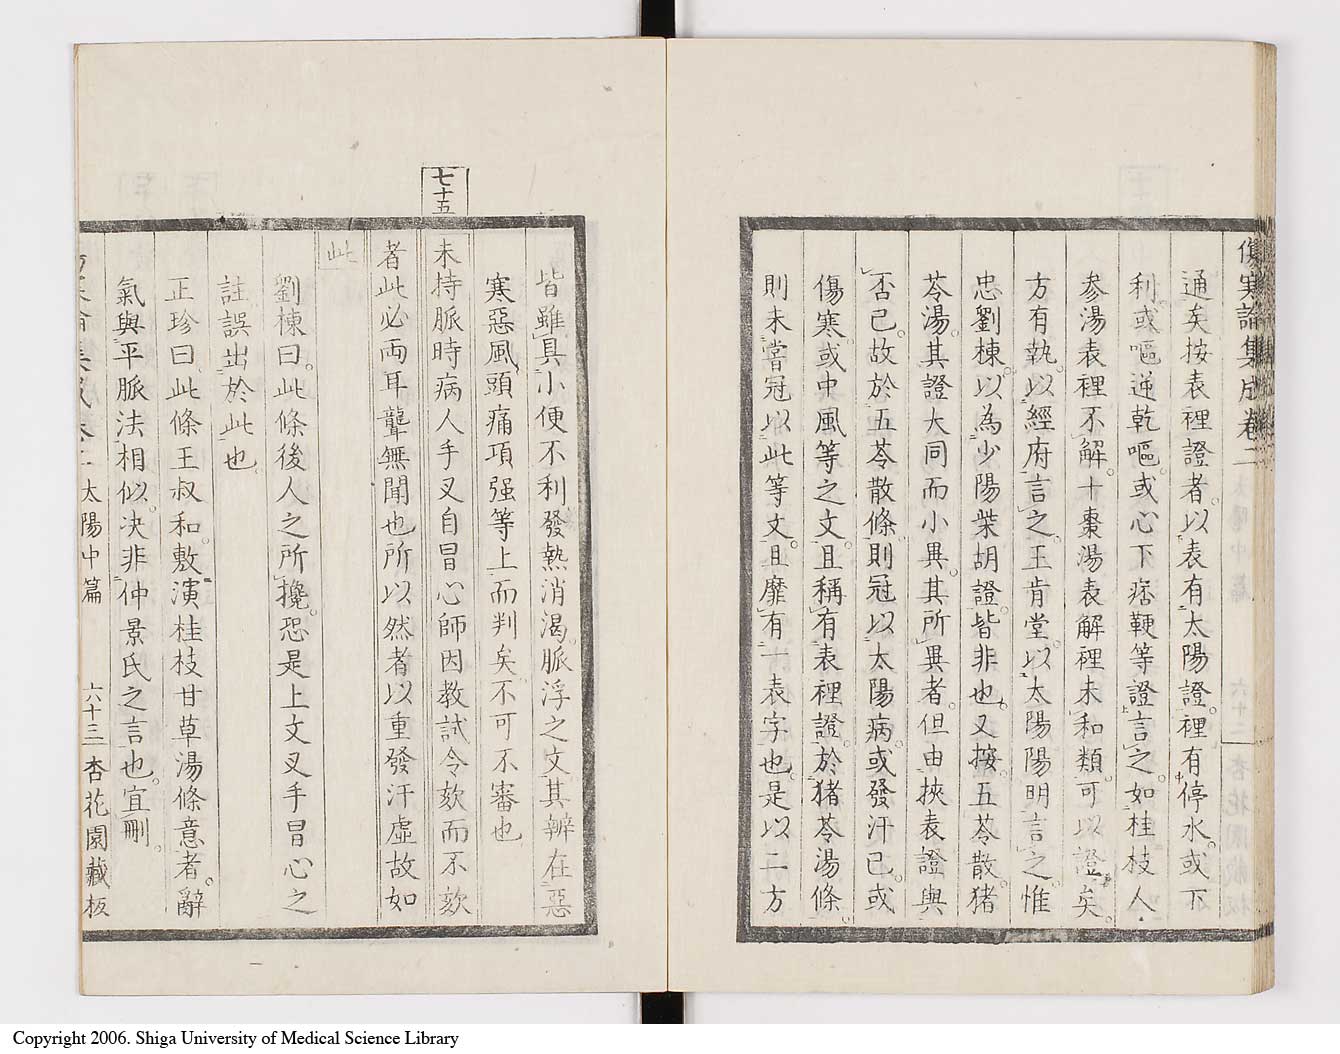 傷寒論集成卷二
通矣。按表裡證者。以表有太陽證。裡有停水。或下
利。或嘔逆乾嘔。或心下痞鞕等證言之。如桂枝人
參湯表裡不解。十棗湯表解裡未和類。可以證矣。
方有執。以經府言之。王肯堂。以太陽陽明言之。惟
忠劉棟。以為少陽柴胡證。皆非也。又按。五苓散。猪
苓湯。其證大同而小異。其所異者。但由挾表證與
否已。故於五苓散條。則冠以太陽病。或發汗已。或
傷寒。或中風等之文。且稱有表裡證。於猪苓湯條。
則未嘗冠以此等文。且靡有一表字也。是以二方
皆雖具小便不利發熱消渴。脈浮之文其辨在惡
寒惡風頭痛項强等上而判矣。不可不審也
七十五
未持脈時病人手叉自冒心師因教試令欬而不欬
者此必兩耳聾無聞也所以然者以重發汗虛故如
此
劉棟曰。此條後人之所攙。恐是上文叉手冒心之
註誤出於此也。
正珍曰。此條王叔和。敷演桂枝甘草湯條意者。辭
氣與平脈法相似。決非仲景氏之言也。宜刪。
太陽中篇 六十三 杏花園藏板
Copyright 2006. Shiga University of Medical Science Library